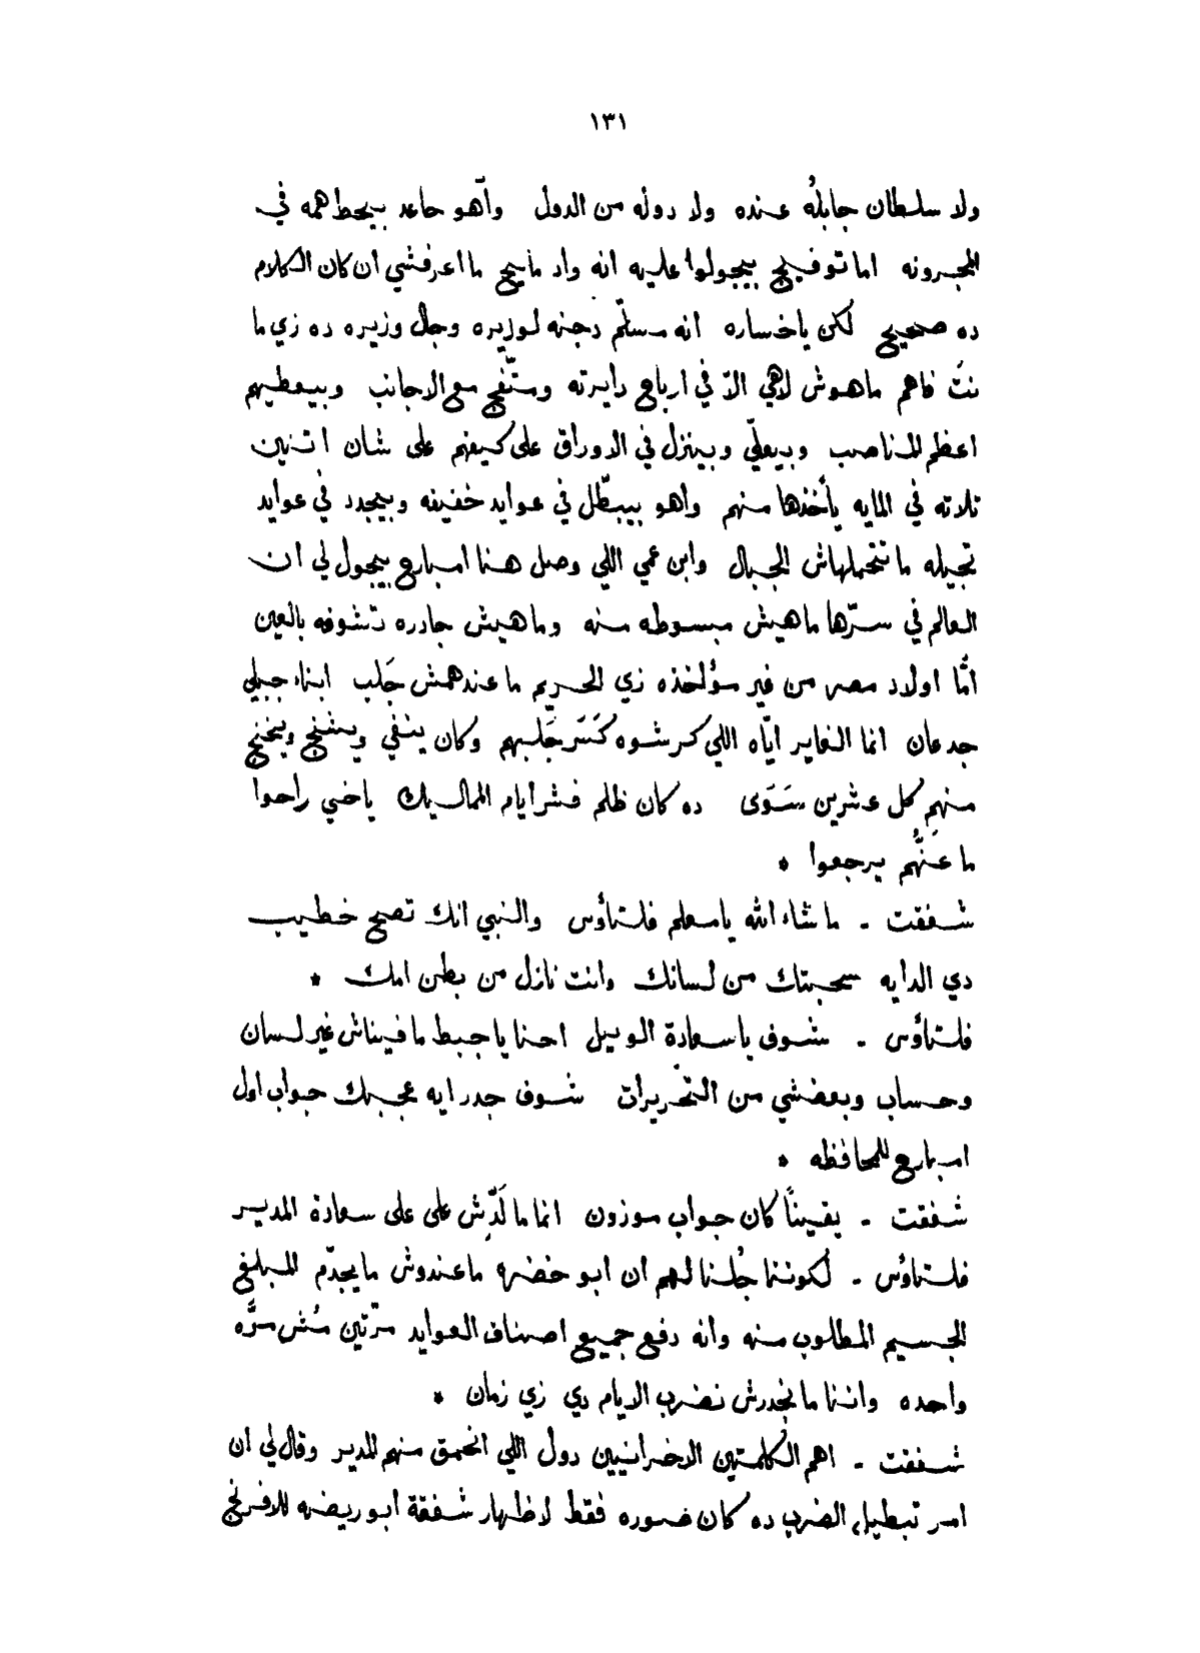 ١٣١
ولا سلطان جابلُه عنده ولا دوله من الدول وآهو حاعد بيحط همه في
الجرونه اما توفيج بيجولوا عليه انه واد مليح ما اعرفشي ان كان الكلام
ده صحيح لكن ياخساره انه مسلّم دجنه لوزيره وجال وزيره ده زي ما
نتَ فاهم ماهوش لاهي الاّ في ارباح دايرته ومتّفج مع الاجانب وبيعطيهم
اعظم المناصب وبيعلّي وبينزل في الاوراق على كيفهم على شان اتنين
تلاته في المايه يأخذها منهم وأهو بيبطّل في عوايد خفيفه وبيجدد في عوايد
تجيله ما تتحملهاش الجبال وابن عمي اللي وصل هنا امبارح بيجول لي ان
العالم في سرّها ماهيش مبسوطه منه وماهيش جادره تشوفه بالعين
امّا اولاد مصر من غير مؤاخذه زي الحريم ما عندهمش جَلب ابناء جبلي
جدعان انما الغاير ايّاه اللي كرشوه كَسَر جَلبهم وكان ينفي ويشنج ويخنج
منهم كل عشرين سَوَى ده كان ظلم فشر ايام المماليك ياخي راحوا
ما عَنُّهم يرجعوا *
شفقت - ماشاء الله يامعلم فلتاؤس والنبي انك تصح خطيب
دي الدايه سحبتك من لسانك وانت نازل من بطن امك *
فلتاؤس - شوف ياسعادة الوبيل احنا ياجبط ما فيناش غير لسان
وحساب وبعضشي من التحريرات شوف جدر ايه عجبك جواب اول
امبارح للمحافظه *
شفقت - يقيناً كان جواب موزون انما ما لَدِّش على على سعادة المدير
فلتاؤس - لكوننا جُلنا لهم ان ابو خضره ماعندوش مايجدّم المبلغ
الجسيم المطلوب منه وانه دفع جميع اصناف العوايد مرّتين مُش مرَّه
واحده واننا ما نجدرش نضرب الايام دي زي زمان *
شفقت - اهم الكلمتين الاخرانيين دول اللي انحمق منهم المدير وقال لي ان
امر تبطيل الضرب ده كان ضوره فقط لاظهار شفقة ابو ريضه للافرنج